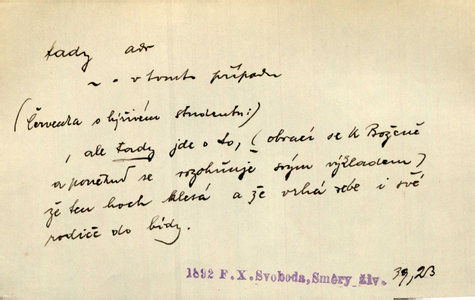 tady adv
~ = v tomto případu
(Červenka o hýřivém studentu:)
, ale tady jde o to, (obrací se k Boženě
a poněkud se rozohňuje svým výkladem)
že ten hoch klesá a že vrhá sebe i své
rodiče do bídy.
1892 F. X. Svoboda, Směry živ. 39,23